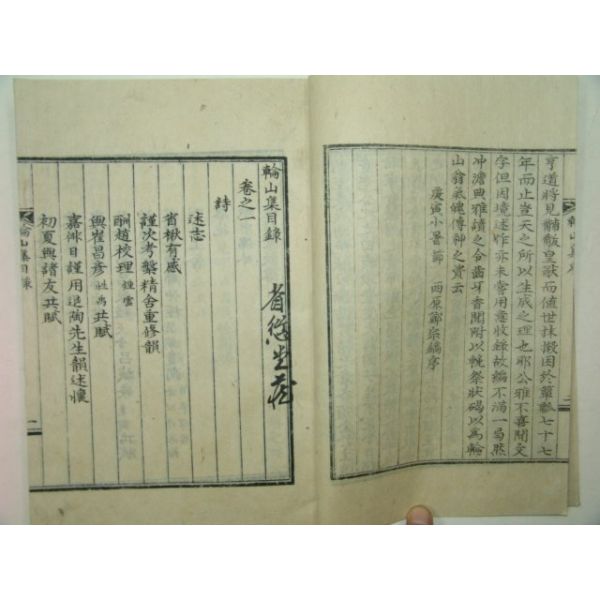 亨道將見黼黻皇猷而値世抹摋困於簞瓢七十七
年而止豈天之所以生成之理也耶公雅不喜聞文
字但因境述作亦未嘗用意收錄故編不滿一局然
冲澹典雅讀之令齒牙香聞附以輓祭狀碣以爲輪
山翁氣魄傳神之資云
庚寅小暑節 西原鄭宗編序
輪山集
二
輪山集目錄
卷之一
詩
述志
省楸有感
謹次考槃精舍重修韻
酬趙校理
與崔昌彦 共賦
嘉俳日謹用退陶先生韻述懷
初夏與諸友共賦
輪山集目錄
一